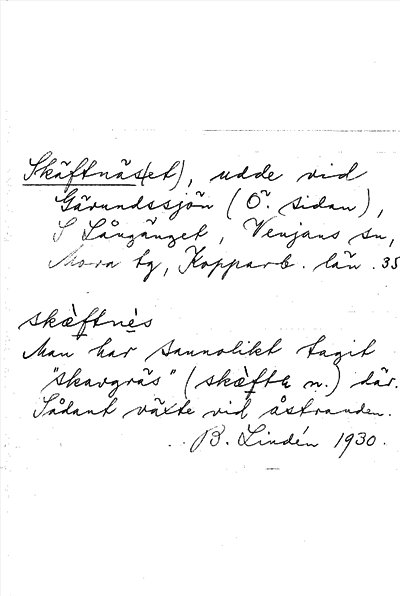 Skäftnäs(et), udde vid
Gärundssjön (Ö. sidan),
S Långänget, Venjans sn,
Mora tg, Kopparb. län. 35
skæ̀ftnɛ̀s
Man har sannolikt tagit
"skavgräs" (skæ̀fte n.) där.
Sådant växte vid åstranden.
B. Lindén 1930.